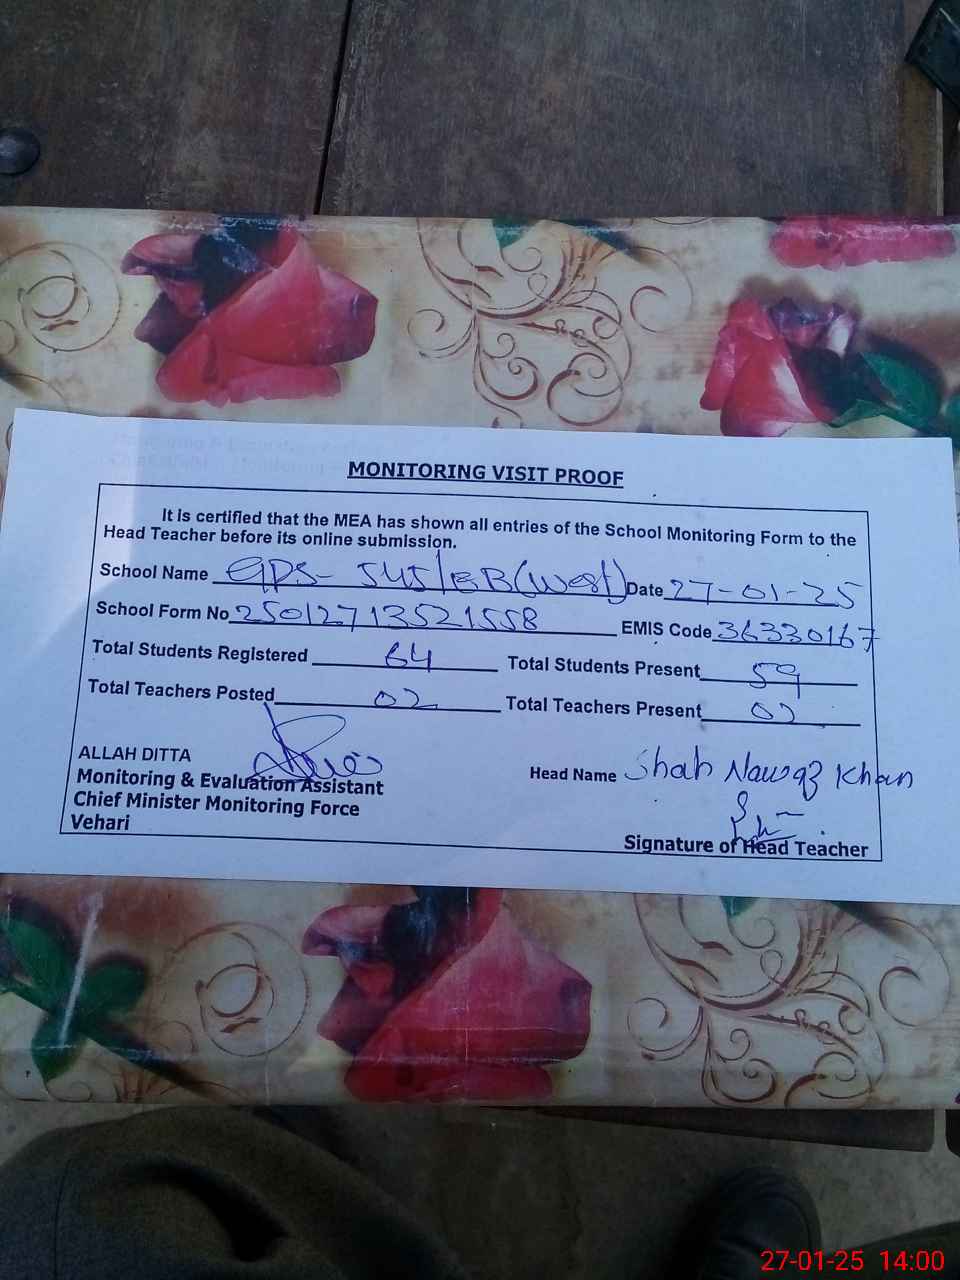 MONITORING VISIT PROOF
It is certified that the MEA has shown all entries of the School Monitoring Form to the
Head Teacher before its online submission.
School Name GPS- 545/EB(West) Date 27-01-25
School Form No 25012713521558 EMIS Code 36330167
Total Students Registered 64 Total Students Present 59
Total Teachers Posted 02 Total Teachers Present 02
ALLAH DITTA
Monitoring & Evaluation Assistant Head Name Shah Nawaz Khan
Chief Minister Monitoring Force
Vehari Signature of Head Teacher
27-01-25 14:00